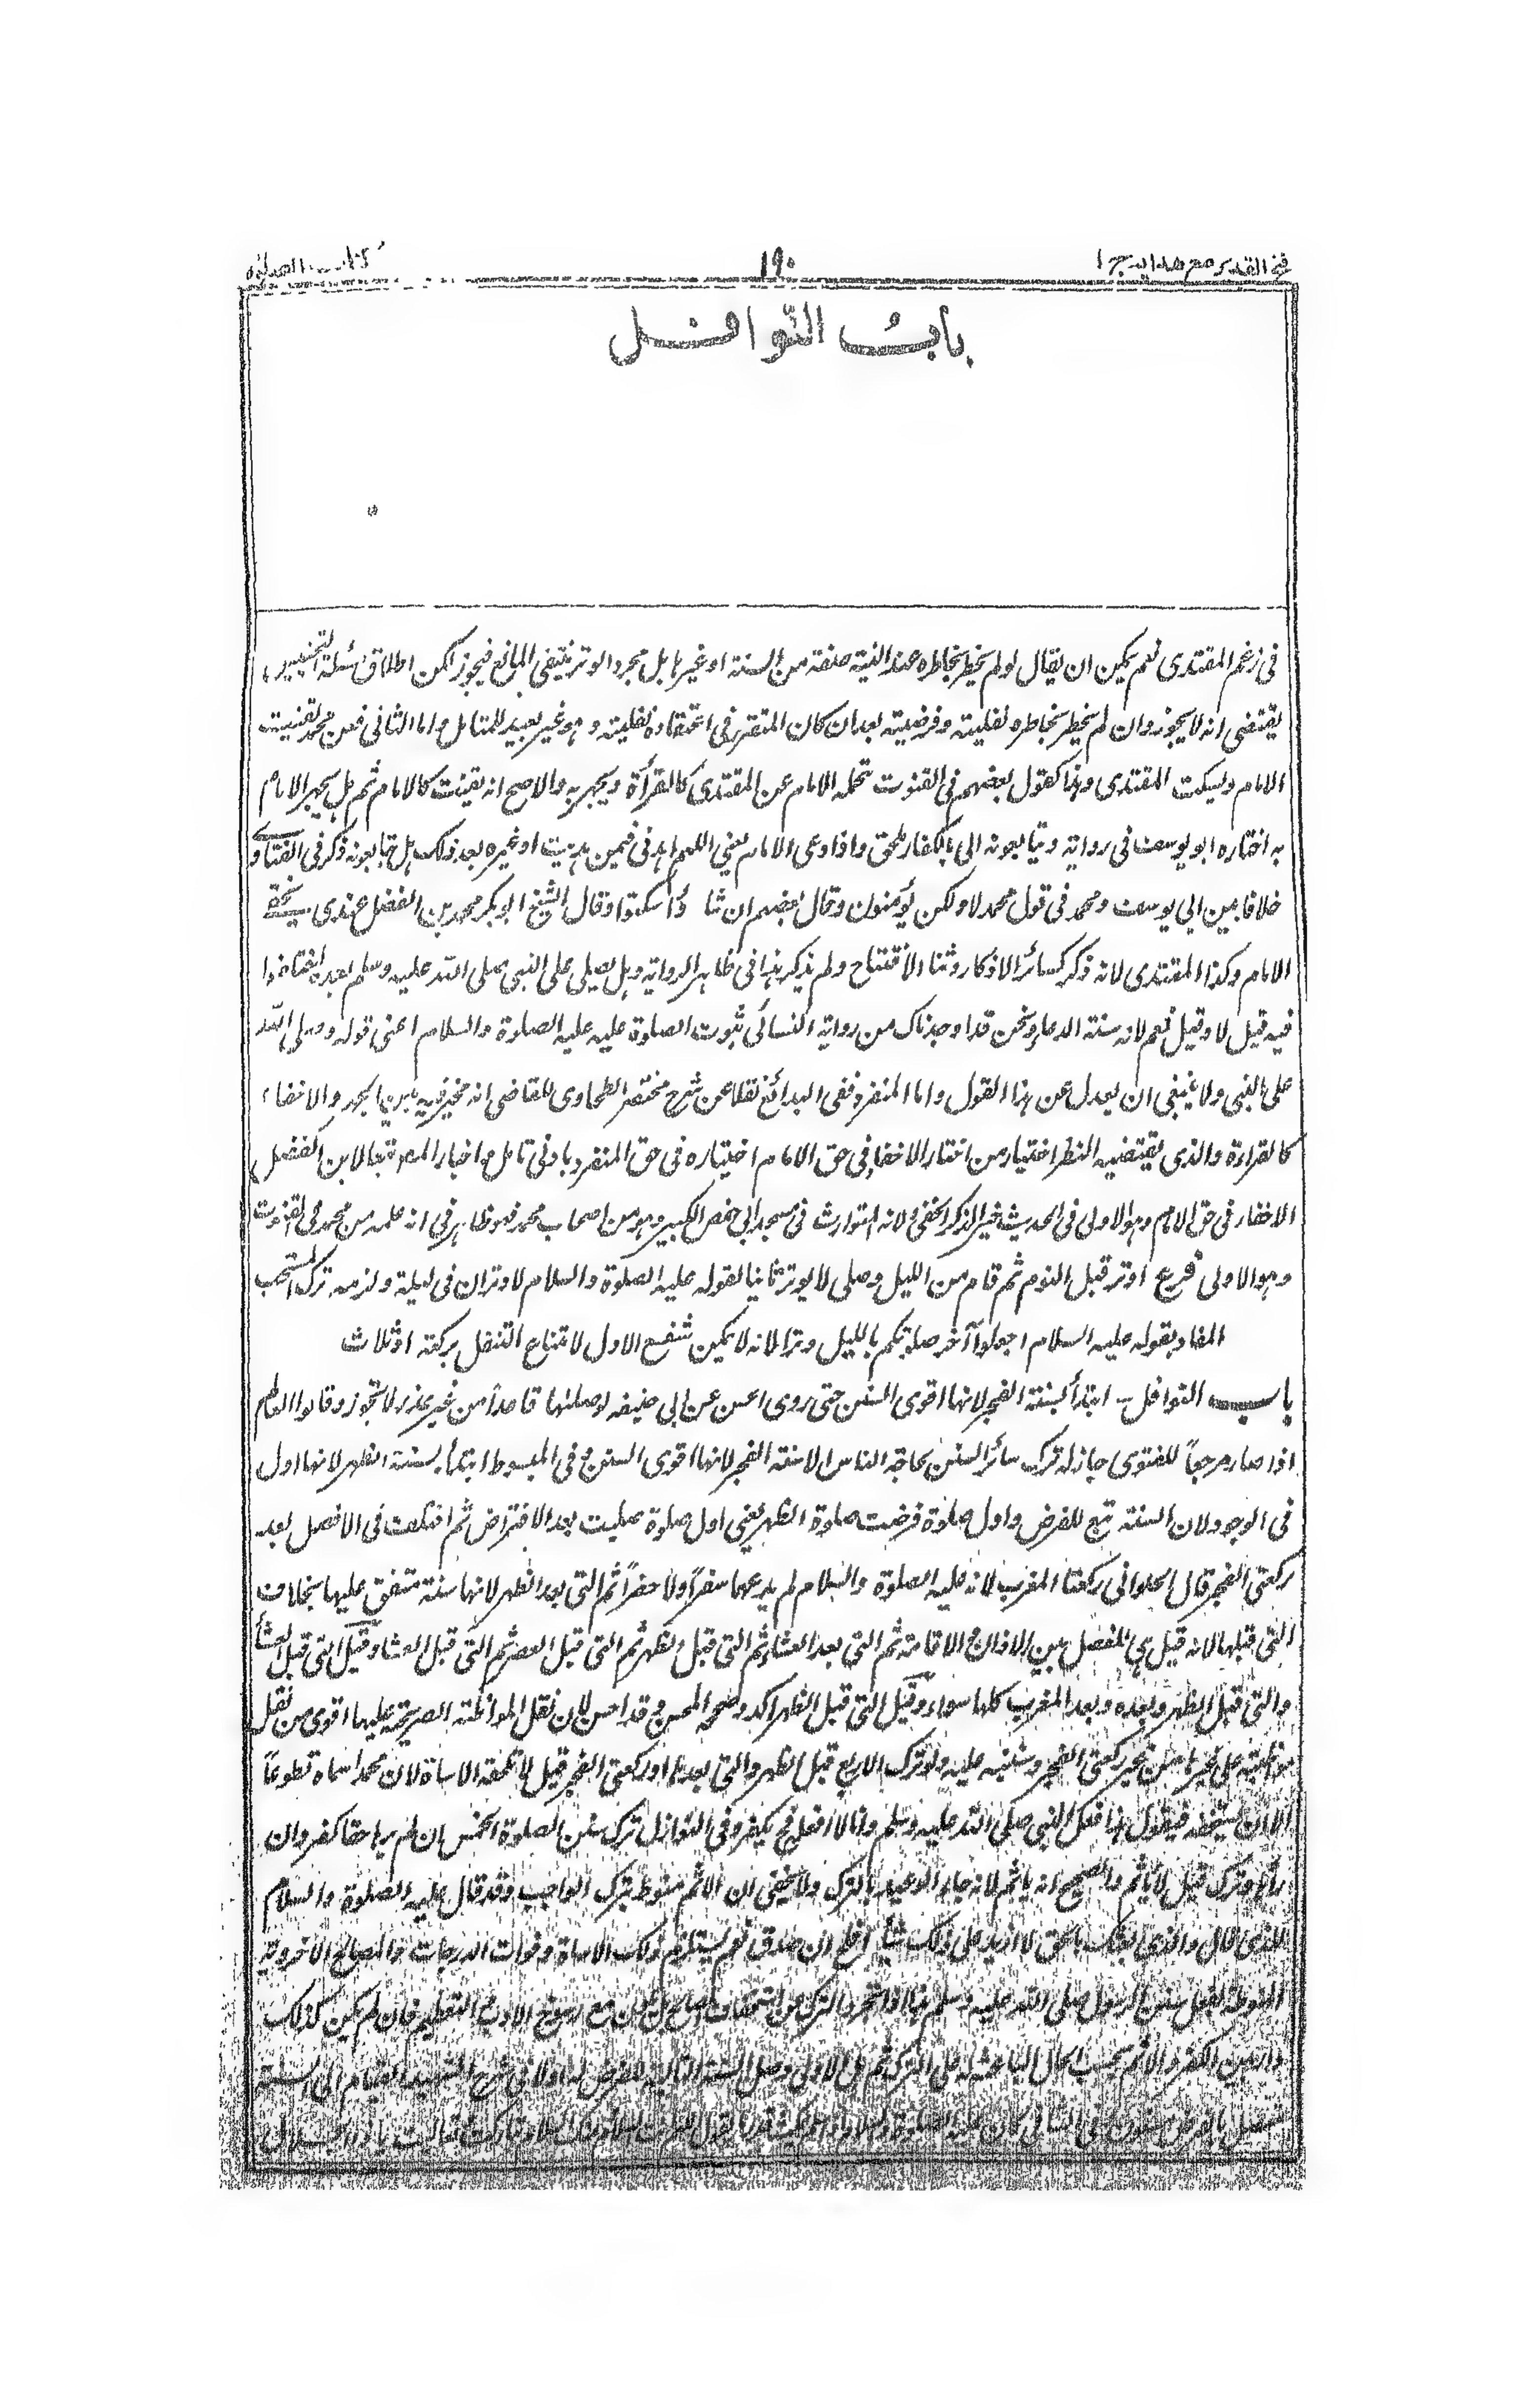 فتح القدير مع هدايه ج ١
١٩٠
كتاب الصلوة
باب النوافل
فى زعم المقتدى نعم يمكن ان يقال لو لم يخطر بخاطره عند النية صفته من السنة او غيرها بل مجرد الوتر ينتفى المانع فيجوز لكن اطلاق مسئلة التجنيس
يقتضى انه لا يجوز وان لم يخطر بخاطره نفليته وفرضيته بعد ان كان المتقرر فى اعتقاده نفليته وهو غير بعيد للمتامل واما الثانى فعن محمد يقنت
الامام ويسكت المقتدى وهذا كقول بعضهم فى القنوت تحمله الامام عن المقتدى كالقرأة ويجهر به والاصح انه يقنت كالامام ثم هل يجهر الامام
به اختاره ابو يوسف فى رواية ويتابعونه الى بالكفار ملحق واذا دعى الامام يعنى اللهم اهدنى فيمن هديت او غيره بعد ذلك هل يتابعونه ذكر فى الفتاوے
خلافا بين ابى يوسف ومحمد فى قول محمد لا ولكن يؤمنون وقال بعضهم ان شاؤا سكتوا وقال الشيخ ابو بكر محمد بن الفضل عندى يخفے
الامام وكذا المقتدى لانه ذكر كسائر الاذكار وثناء الافتتاح ولم يذكر هذا فى ظاهر الرواية وهل يصلى على النبى صلى الله عليه وسلم بعده اختلفوا
فيه قيل لا وقيل نعم لانه سنة الدعاء ونحن قد اوجدناك من رواية النسائى ثبوت الصلوة عليه عليه الصلوة والسلام اعنى قوله وصلى الله
على النبى ولا ينبغى ان يعدل عن هذا القول واما المنفرد ففى البدائع نقلا عن شرح مختصر الطحاوى للقاضى انه مخير فيه بين الجهر والاخفاء
كالقراءة والذى يقتضيه النظر اختيار من اختار الاخفاء فى حق الامام اختياره فى حق المنفرد بادنى تامل واختار المصـ تبعا لابن الفضل
الاخفاء فى حق الامام وهو الاولى فى الحديث خير الذكر الخفى ولانه المتوارث فى مسجد ابى حفص الكبير وهو من اصحاب محمد فهو ظاهر فى انه علمه من محمد فى القنوت
وهو الاولى فرع اوتر قبل النوم ثم قام من الليل وصلى لا يوتر ثانيا لقوله عليه الصلوة والسلام لا وتران فى ليلة ولزمه ترك المستحب
المفاد بقوله عليه السلام اجعلوا آخر صلوتكم بالليل وترا لانه لا يمكن شفع الاول لامتناع التنفل بركعة او ثلاث
باب النوافل ـ ابتدأ بسنة الفجر لانها اقوى السنن حتى روى الحسن عن ابى حنيفه لو صلاها قاعدا من غير عذر لا تجوز وقالوا العالم
اذا صار مرجعا للفتوى جاز له ترك سائر السنن لحاجة الناس الا سنة الفجر لانها اقوى السنن وفى المبسوط ابتدأ بسنة الظهر لانها اول
فى الوجود ولان السنة تبع للفرض واول صلوة فرضت صلوة الظهر يعنى اول صلوة صليت بعد الافتراض ثم اختلف فى الافضل بعد
ركعتى الفجر قال الحلوانى ركعتا المغرب لانه عليه الصلوة والسلام لم يدعهما سفرا ولا حضرا ثم التى بعد الظهر لانها سنة متفق عليها بخلاف
التى قبلها لانه قيل هى للفصل بين الاذان والاقامة ثم التى بعد العشاء ثم التى قبل الظهر ثم التى قبل العصر ثم التى قبل العشاء وقيل التى قبل العشاء
والتى قبل الظهر وبعده وبعد المغرب كلها سواء وقيل التى قبل الظهر اكد وصححه المحسن وقد احسن لان نقل المواظبة الصريحة عليها اقوى من نقل
مواظبته على غيرها من غير ركعتى الفجر وسنبينه عليه ولو ترك الاربع قبل الظهر والتى بعدها او ركعتى الفجر قيل لا تلحقه الاساءة لان محمدا سماه تطوعا
الا ان يستخف فيقول هذا فعل النبى صلى الله عليه وسلم وانا لا افعل فح يكفر وفى النوازل ترك سنن الصلوة الخمس ان لم يرها حقا كفر وان
رآها وترك قيل لا يأثم والصحيح انه يأثم لانه جاء الوعيد بالترك ولا يخفى ان الاثم منوط بترك الواجب وقد قال عليه الصلوة والسلام
للذى قال والذى بعثك بالحق لا ازيد على ذلك شيأ افلح ان صدق نعم يستلزم ذلك الاساءة وفوات الدرجات والمصالح الاخروية
المنوطة بفعل سنن الرسول صلى الله عليه وسلم هذا اذا تجرد الترك عن استخفاف بل يكون مع رسوخ الادب والتعظيم فان لم يكن كذلك
دار بين الكفر والاثم بحسب الحال الباعثة له على الترك ثم هل الاولى وصل السنة التالية للفرض له اولا فى شرح الشهيد القيام الى السنة